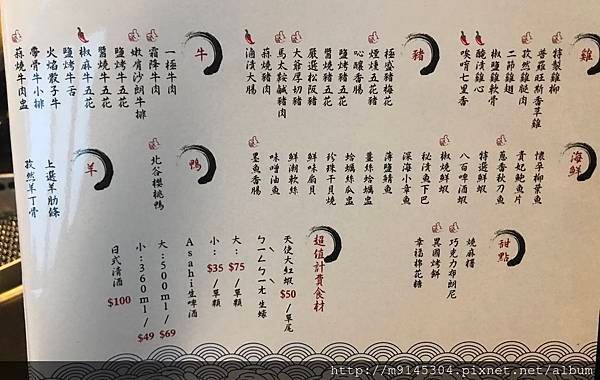 雞
特製雞柳
普羅旺斯香草雞
孜然雞腿肉
二節雞翅
椒鹽雞軟骨
醃漬雞心
唉唷七里香
豬
極盛豬梅花
煙燻五花豬
吣釀香腸
鹽烤豬五花
醬燒豬五花
嚴選松阪豬
大爺厚切豬
馬太鞍鹹豬肉
蒜燒豬肉
滷漬大腸
牛
一極牛肉
霜降牛肉
嫩肩沙朗牛排
鹽烤牛五花
醬燒牛五花
椒麻牛五花
鹽烤牛舌
火焰骰子牛
帶骨牛小排
蒜燒牛肉盅
海鮮
懷孕柳葉魚
貴妃鮑魚片
蔥香秋刀魚
特選鮮蝦
八百啤酒蝦
椒燒鮮蝦
秘漬魚下巴
深海小章魚
薄鹽鯖魚
薑絲蛤蠣盅
蛤蠣絲瓜盅
珍珠干貝燒
鮮味扇貝
鮮潮軟絲
味噌油魚
墨魚香腸
鴨
北谷櫻桃鴨
羊
上選羊肋條
孜然羊丁骨
甜點
燒麻糬
巧克力布朗尼
異國烤餅
幸福棉花糖
超值計費食材
天使大紅蝦 $50/單尾
ㄅㄧㄥˋㄅㄧㄤˋ生蠔
大：$75/單顆
小：$35/單顆
Asahi生啤酒
大：500ml/$69
小：360ml/$49
日式清酒 $100
http://m9145304.pixnet.net/album